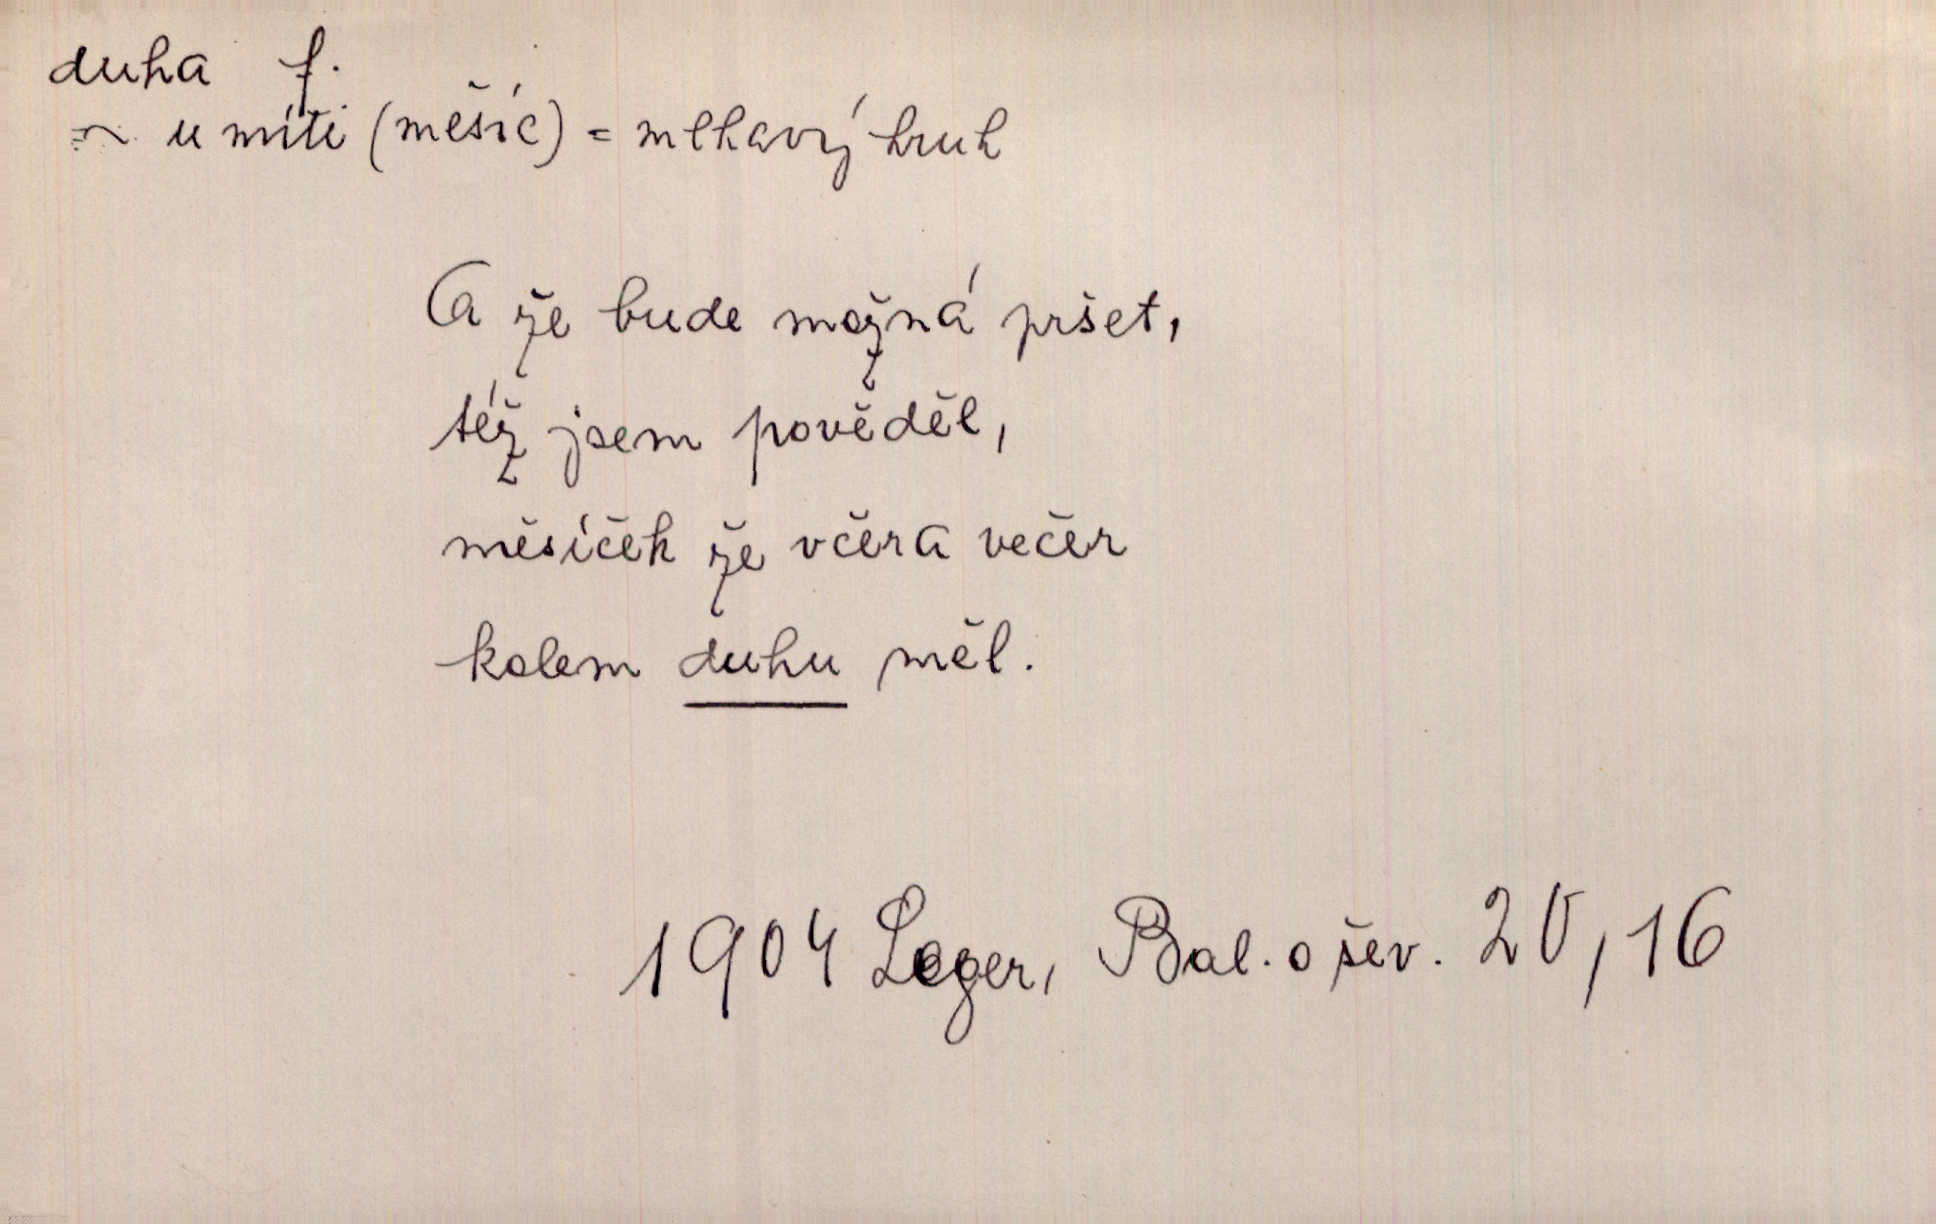 duha f.
~ u míti (měsíc) = mlhavý kruh
A že bude možná pršet,
též jsem pověděl,
měsíček že včera večer
kolem duhu měl.
1904 Leger, Bal. o šev. 20, 16